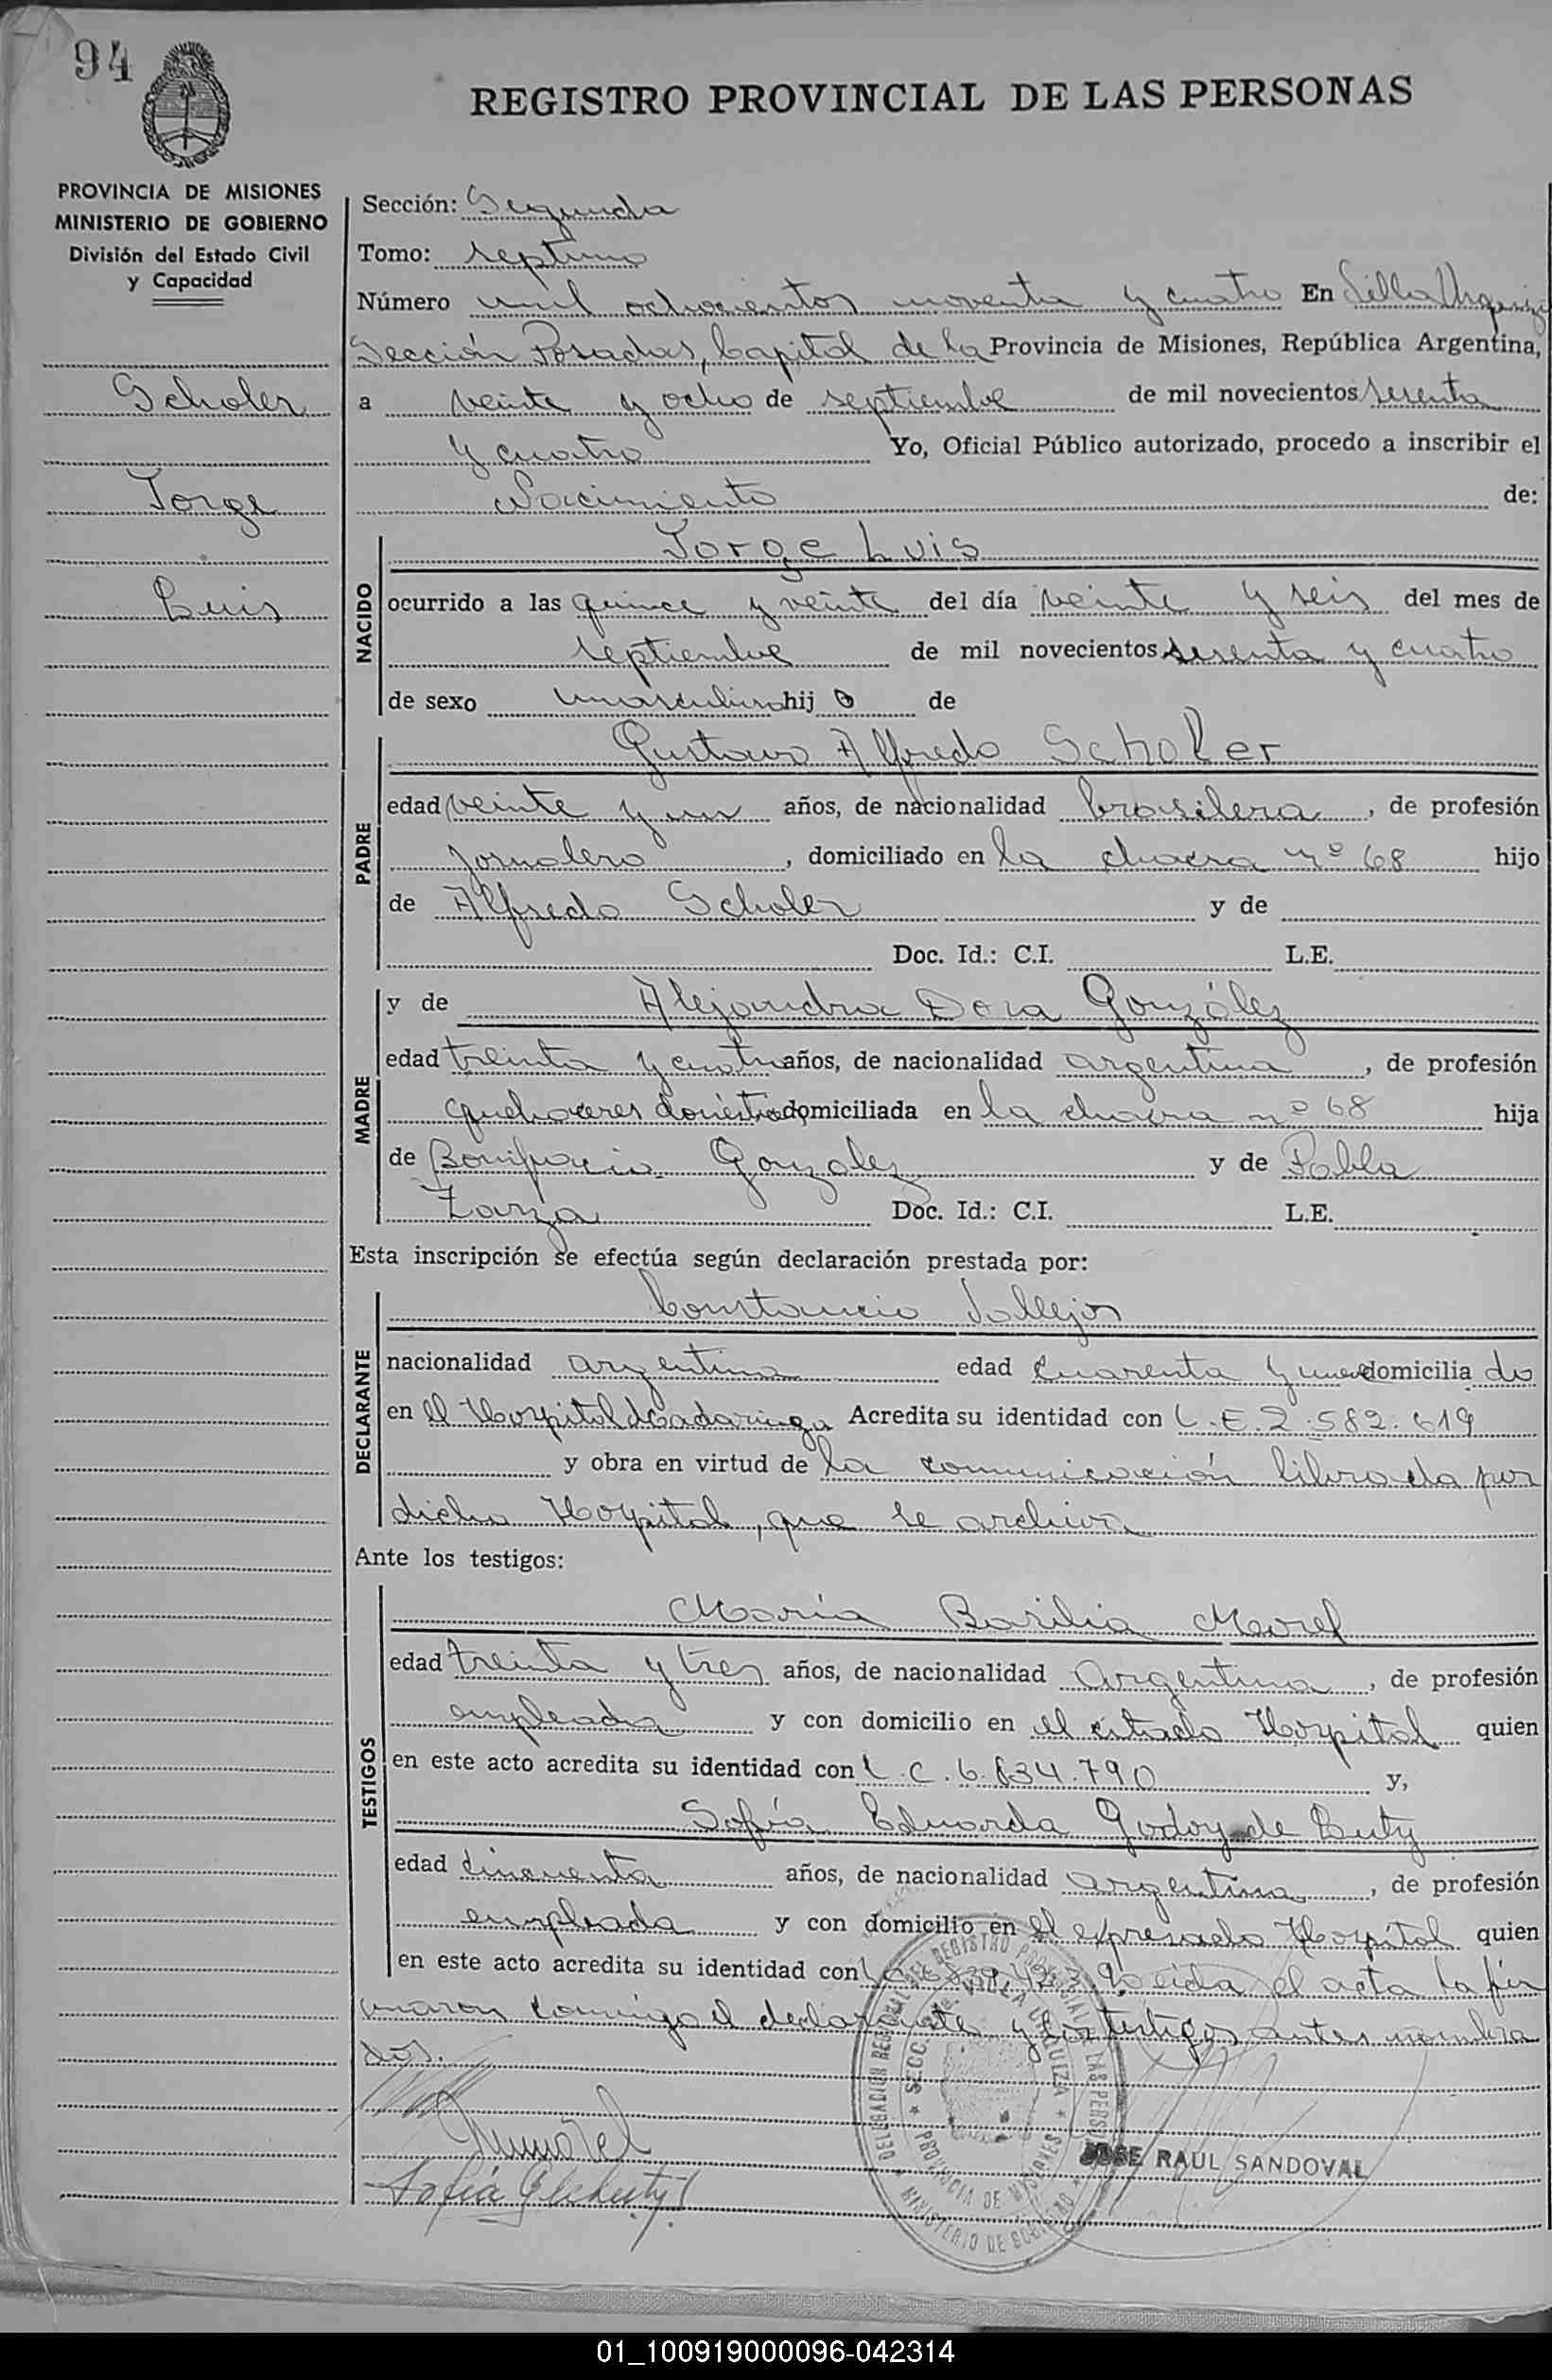 94
REGISTRO PROVINCIAL DE LAS PERSONAS
PROVINCIA DE MISIONES
MINISTERIO DE GOBIERNO
División del Estado Civil
y Capacidad
Scholer
Jorge
Luis
Sección: Segunda
Tomo: septimo
Número mil ochocientos noventa y cuatro En Villa Urquiza
Sección Posadas, Capital de la Provincia de Misiones, República Argentina,
a veinte y ocho de septiembre de mil novecientos sesenta
y cuatro Yo, Oficial Público autorizado, procedo a inscribir el
Nacimiento de:
NACIDO
Jorge Luis
ocurrido a las quince y veinte del día veinte y seis del mes de
septiembre de mil novecientos sesenta y cuatro
de sexo masculino hij o de
PADRE
Gustavo Alfredo Scholer
edad veinte y un años, de nacionalidad brasilera, de profesión
jornalero, domiciliado en la chacra nº 68 hijo
de Alfredo Scholer y de
Doc. Id.: C.I. L.E.
MADRE
y de Alejandra Dora González
edad treinta y cuatro años, de nacionalidad argentina, de profesión
quehaceres domésticos domiciliada en la chacra nº 68 hija
de Bonifacio Gonzalez y de Pabla
Zarza Doc. Id.: C.I. L.E.
Esta inscripción se efectúa según declaración prestada por:
DECLARANTE
Constancio Vallejos
nacionalidad argentina edad cuarenta y nueve domicilia do
en el Hospital Madariaga Acredita su identidad con L.E. 2.582.619
y obra en virtud de la comunicación librada por
dicho Hospital, que se archiva
Ante los testigos:
TESTIGOS
María Basilia Morel
edad treinta y tres años, de nacionalidad argentina, de profesión
empleada y con domicilio en el citado Hospital quien
en este acto acredita su identidad con L.C. 6.834.790 y,
Sofía Eduarda Godoy de Cuty
edad cincuenta años, de nacionalidad argentina, de profesión
empleada y con domicilio en el expresado Hospital quien
en este acto acredita su identidad con Leida el acta la fir
maron conmigo el declarante y los testigos antes nombra
dos.
DELEGACION REGIONAL DEL REGISTRO PROVINCIAL DE LAS PERSONAS
SECC. VILLA URQUIZA
PROVINCIA DE MISIONES
MINISTERIO DE GOBIERNO
JOSE RAUL SANDOVAL
01_100919000096-042314